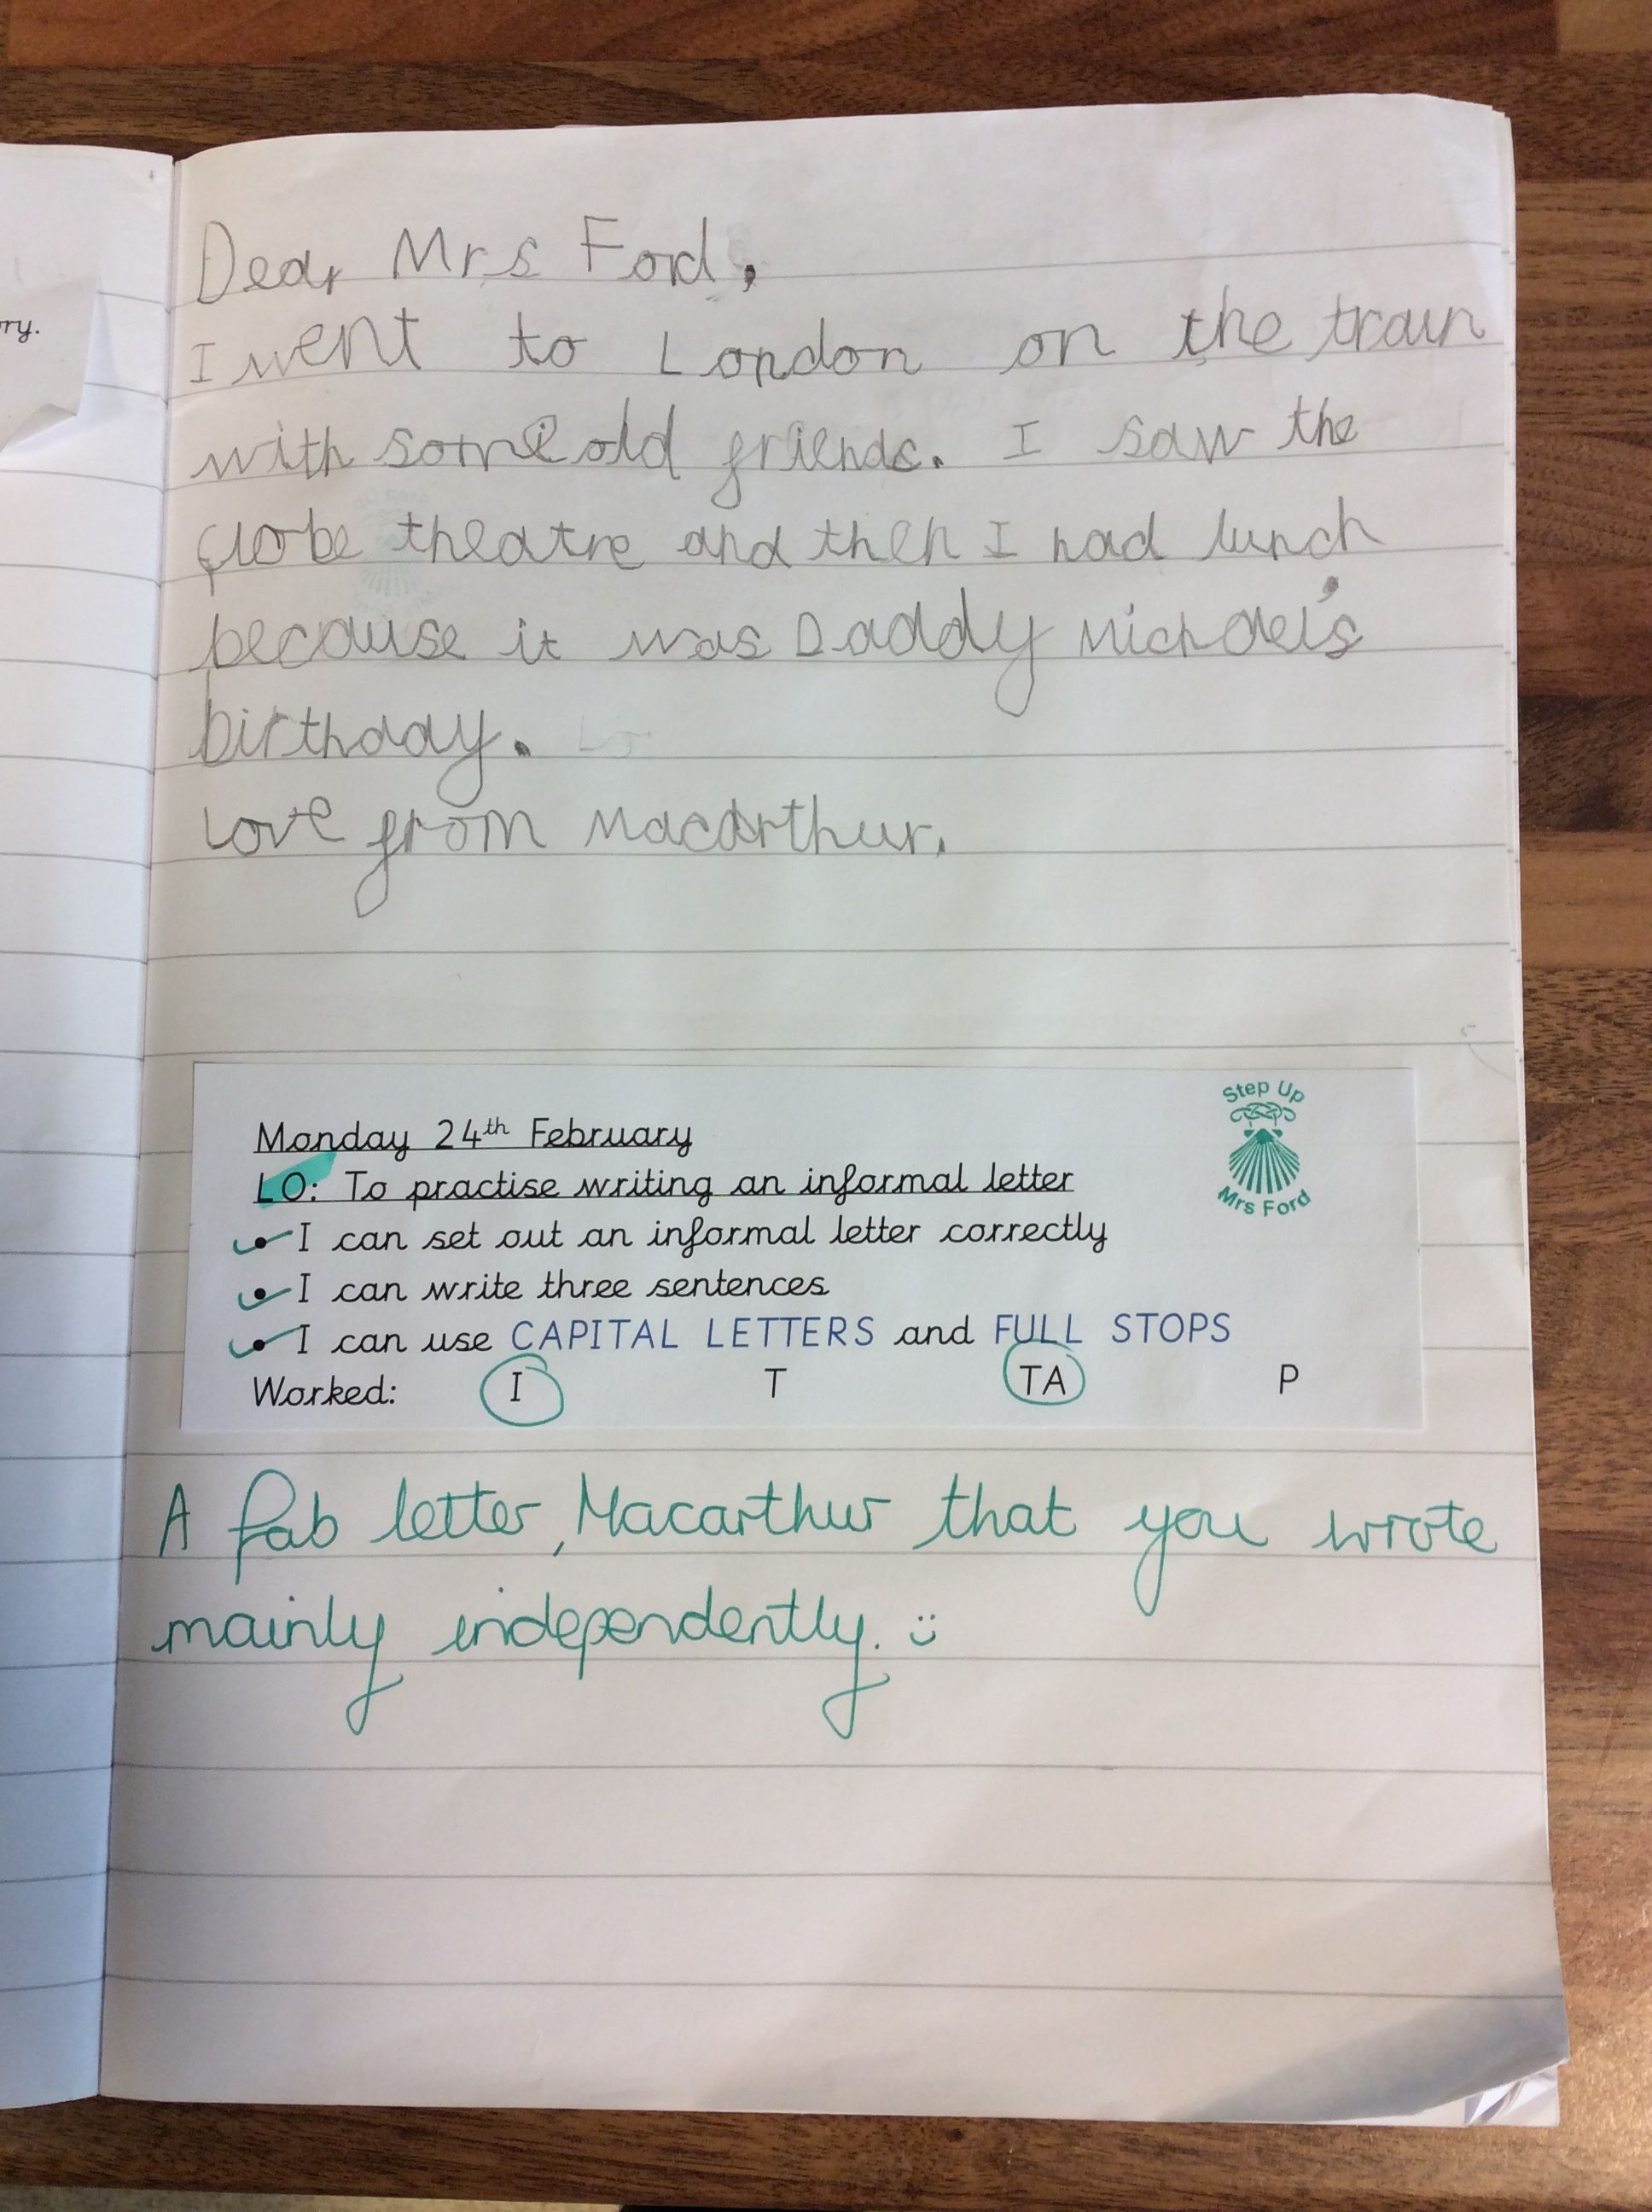 ry.
Dear Mrs Ford,
I went to London on the train
with some old friends. I saw the
globe theatre and then I had lunch
because it was Daddy Michael's
birthday.
Love from Macarthur.
Step Up
Mrs Ford
Monday 24th February
LO: To practise writing an informal letter
• I can set out an informal letter correctly
• I can write three sentences
• I can use CAPITAL LETTERS and FULL STOPS
Worked: I T TA P
A fab letter, Macarthur that you wrote
mainly independently. :)